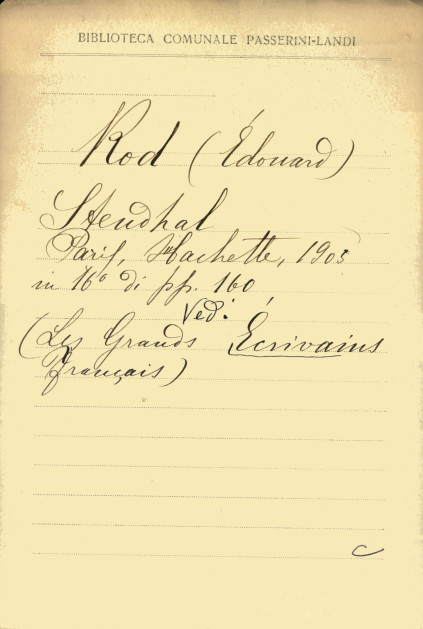 BIBLIOTECA COMUNALE PASSERINI-LANDI
Rod (Édouard)
Stendhal
Paris, Hachette, 1903
in 16° di pp. 160
Vedi:
(Les Grands Écrivains
français)
C